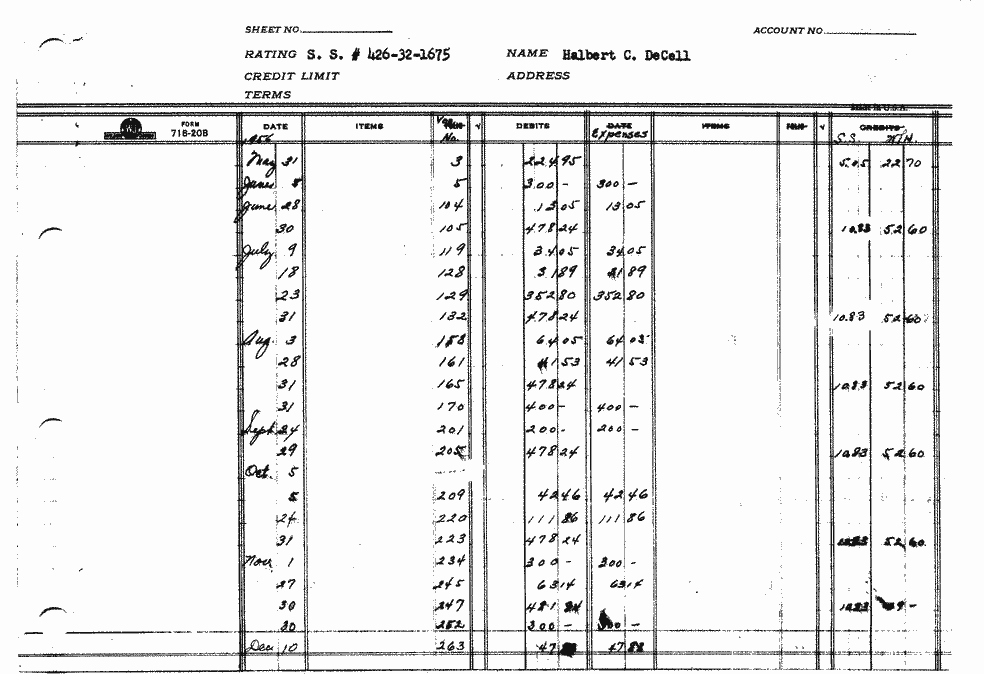 SHEET NO. ACCOUNT NO.
RATING S. S. # 426-32-1675 NAME Halbert C. DeCell
CREDIT LIMIT ADDRESS
TERMS
FORM 718-20B DATE ITEMS No. √ DEBITS DATE Expenses ITEMS √ CREDITS S.S. W/H.
1956
May 31 3 224 95 5.05 22 70
June 8 5 300 - 300 -
June 28 104 13 05 13 05
30 105 478 24 10.83 52 60
July 9 119 34 05 34 05
18 128 31 89 31 89
23 129 352 80 352 80
31 132 478 24 10.83 52 60
Aug 3 153 64 05 64 05
28 161 41 53 41 53
31 165 478 24 10.83 52 60
31 170 400 - 400 -
Sept 24 201 200 - 200 -
29 205 478 24 10.83 52 60
Oct. 5
5 209 42 46 42 46
24 220 111 86 111 86
31 223 478 24 10.83 52 60
Nov 1 234 300 - 300 -
27 245 63 14 63 14
30 247 481 10.83
30 252 300 - 300 -
Dec 10 263 47 88 47 88